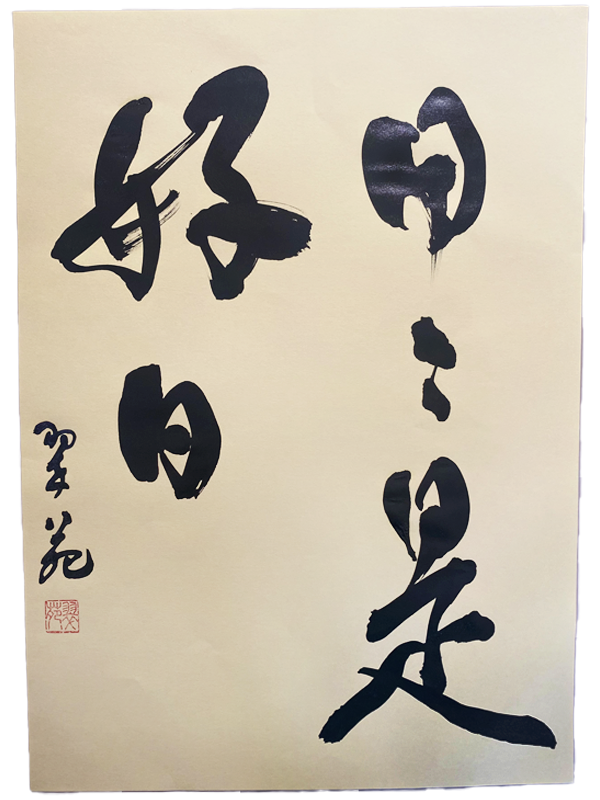 日々是
好日
翠苑